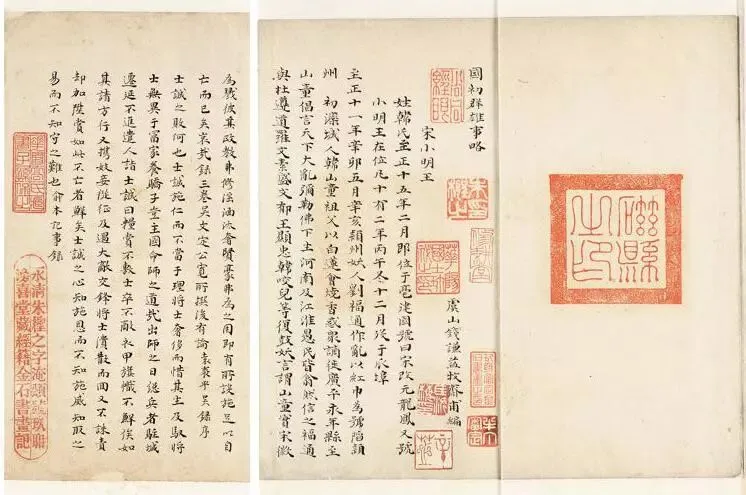 磁縣之印
國初群雄事略
宋小明王
虞山錢謙益牧齋甫編
姓韓氏至正十五年二月即位于亳建國號曰宋改元龍鳳又號
小明王在位凡十有二年丙午冬十二月歿于瓜埠
至正十一年辛卯五月辛亥潁州妖人劉福通作亂以紅巾為號陷潁
州 初灤城人韓山童祖父以白蓮會燒香惑衆謫徙廣平永年縣至
山童倡言天下大亂彌勒佛下生河南及江淮愚民皆翕然信之福通
與杜遵道羅文素盛文郁王顯忠韓咬兒等復鼓妖言謂山童實宋徽
為戮彼其政教弗修奢賢豪弗為之用即有所談施足以自
亡而已矣袁錄三卷吳文定公寬所撰後有論袁裘平吳錄序
士誠之敗何也士誠施仁而不當于理將士奢侈而惜其主及馭將
士無異于富家養驕子童主國命師之道出師之日總兵者駐城
遷延不進遣人詣士誠曰糧賞不敷士卒不敵衣甲旗幟不鮮俟如
其請方行又攜妓妾從征及遇大敵交鋒將士潰散而回又不誅責
却加陞賞如此不亡者鮮矣士誠之心知施恩而不知施威知取之
易而不知守之難也俞本記事錄
永清朱檉之字淹頌號玖聃
喜堂藏經籍金石書畫記